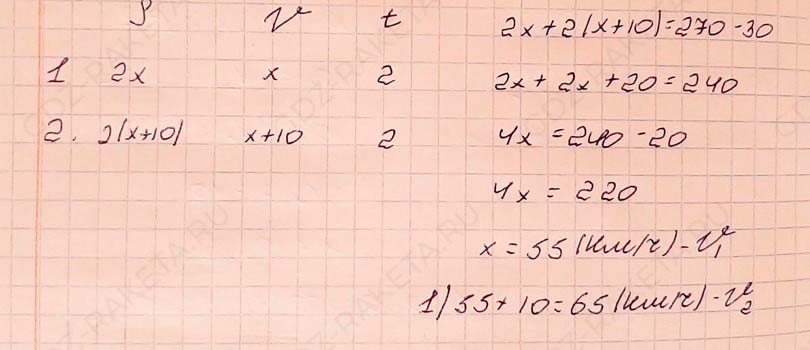 S v t
1 2x x 2
2. 2(x+10) x+10 2
2x+2(x+10)=270-30
2x+2x+20=240
4x=240-20
4x=220
x=55(км/ч)-v₁
1) 55+10=65(км/ч)-v₂
GDZ-RAKETA.RU